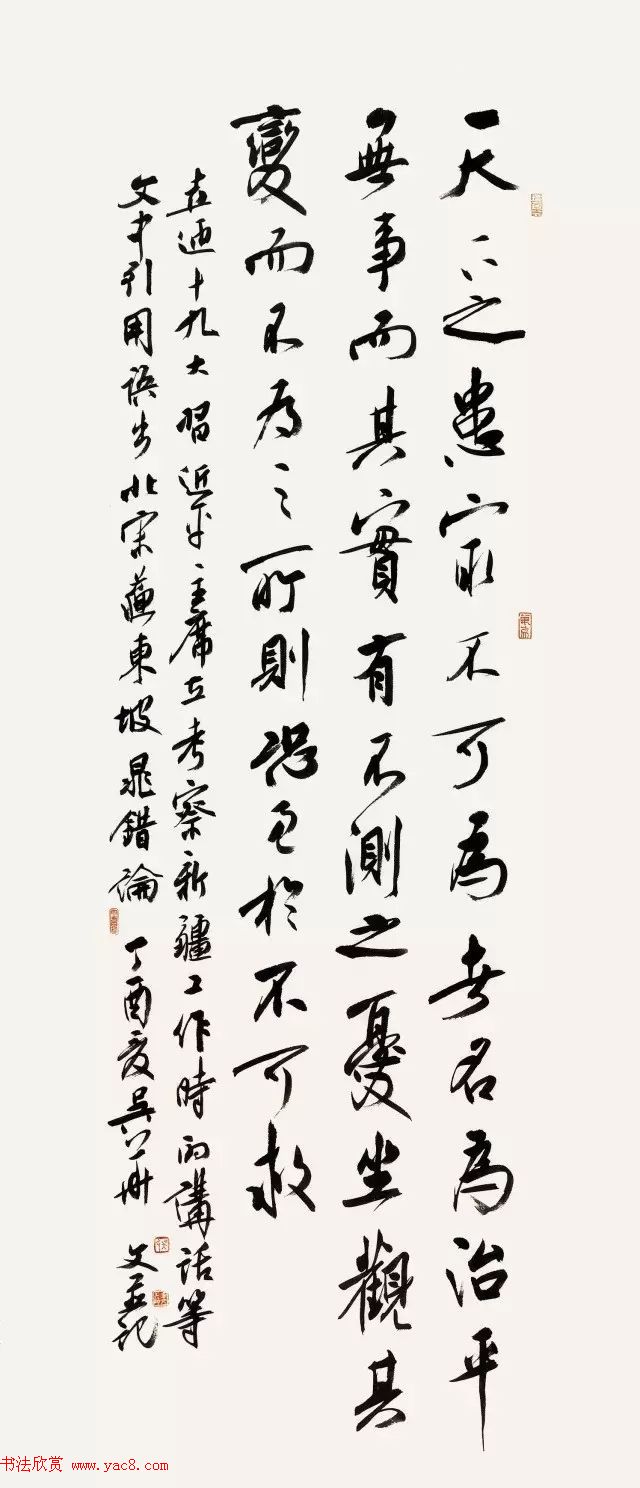 天下之患最不可為者名為治平
無事而其實有不測之憂坐觀其
變而不為之所則恐至於不可救
喜迎十九大習近平主席在考察新疆工作時的講話等
文中引用語出北宋蘇東坡晁錯論 丁酉夏
书法欣赏 www.yac8.com